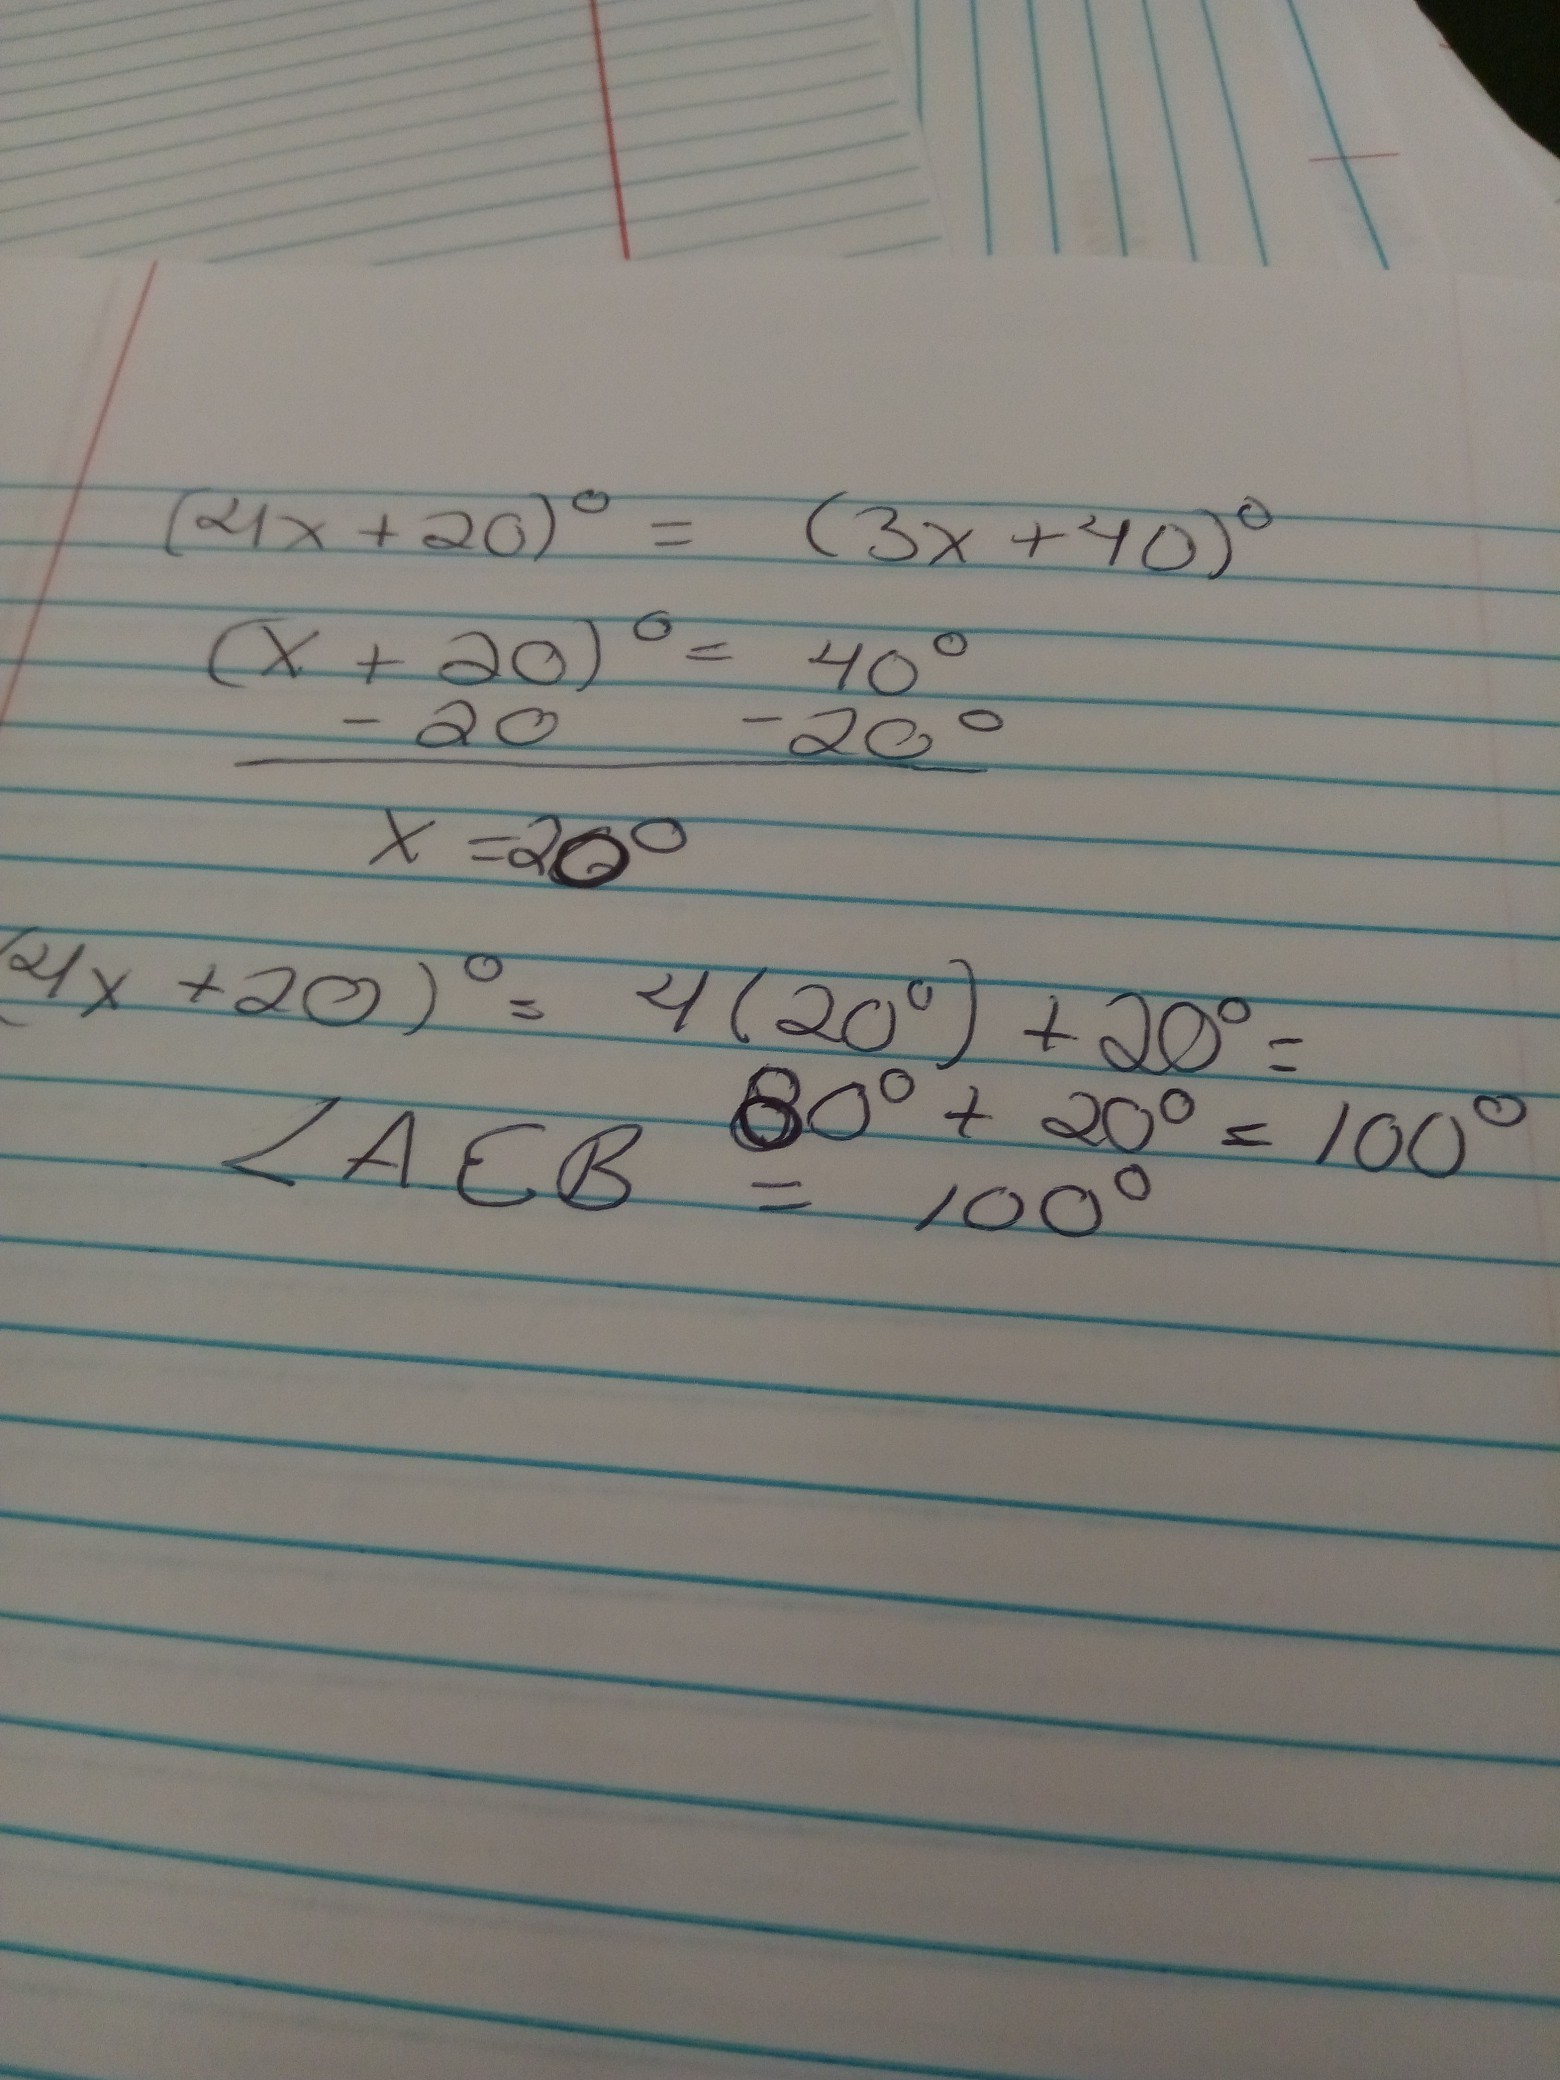 (4x + 20)° = (3x + 40)°
(x + 20)° = 40°
- 20 - 20°
x = 20°
(4x + 20)° = 4(20°) + 20° =
80° + 20° = 100°
∠AEB = 100°